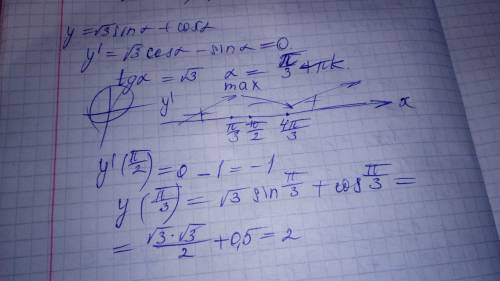 y = √3 sinα + cosα
y' = √3 cosα - sinα = 0
tgα = √3   α = π/3 + πk.
max
y'   x
π/3   π/2   4π/3
y'(π/2) = 0 - 1 = -1
y(π/3) = √3 sin π/3 + cos π/3 =
= √3·√3/2 + 0,5 = 2